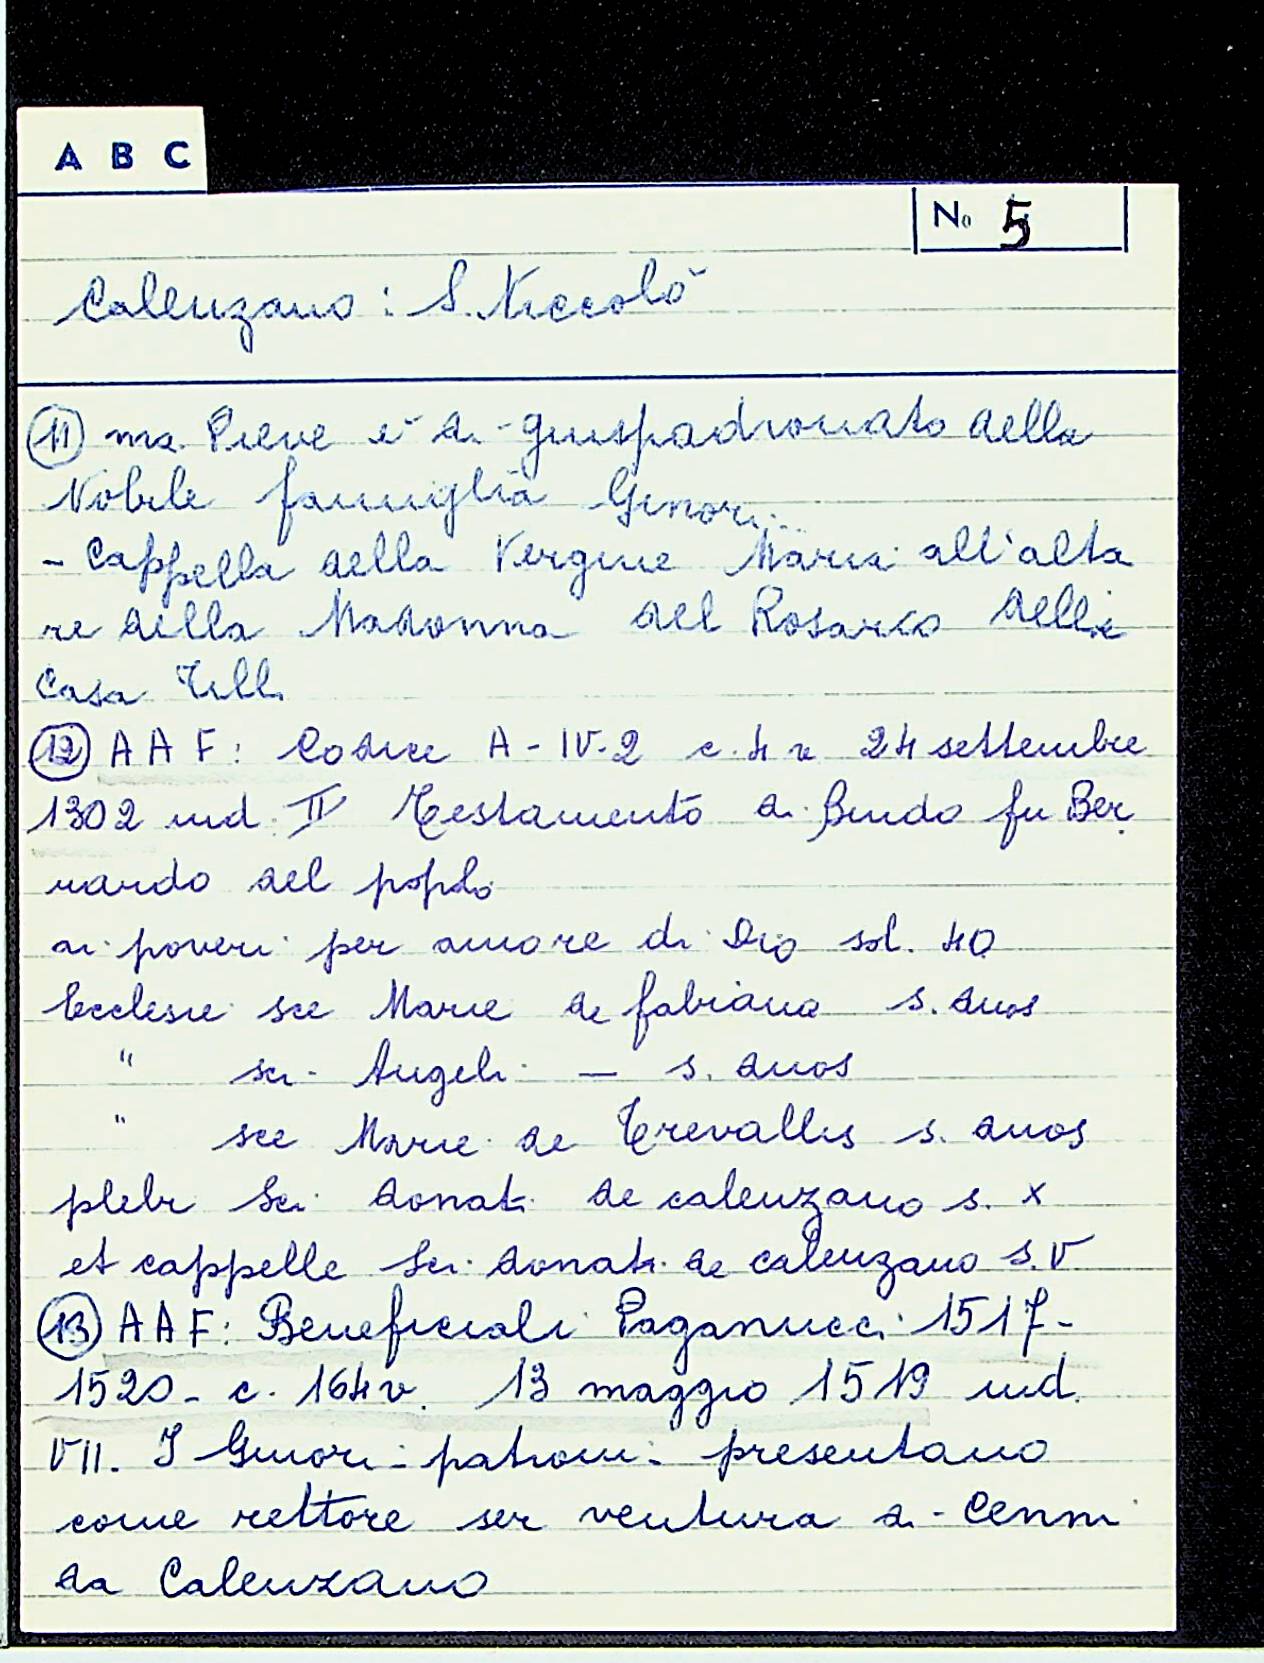 A B C
No 5
Calenzano: S. Niccolò
11 ma Pieve è di giuspadronato della
Nobile famiglia Ginori..
- Cappella della Vergine Maria all'alta
re della Madonna del Rosario della
Casa Tilli
12 AAF: Codice A-IV-2 c. 4 v 24 settembre
1302 ind. II Testamento di Bindo fu Ber
nardo del popolo
ai poveri per amore di Dio sol. 40
Ecclesie sce Marie de fabiana s. duos
" sci Angeli - s. duos
" sce Marie de Crevallis s. duos
plebi Sci Donati de calenzano s. X
et cappelle Sci Donati de calenzano s. V
13 AAF: Beneficiali Paganucci 1517-
1520 - c. 164v. 13 maggio 1519 ind.
VII. I Ginori patroni presentano
come rettore ser ventura di Cenni
da Calenzano